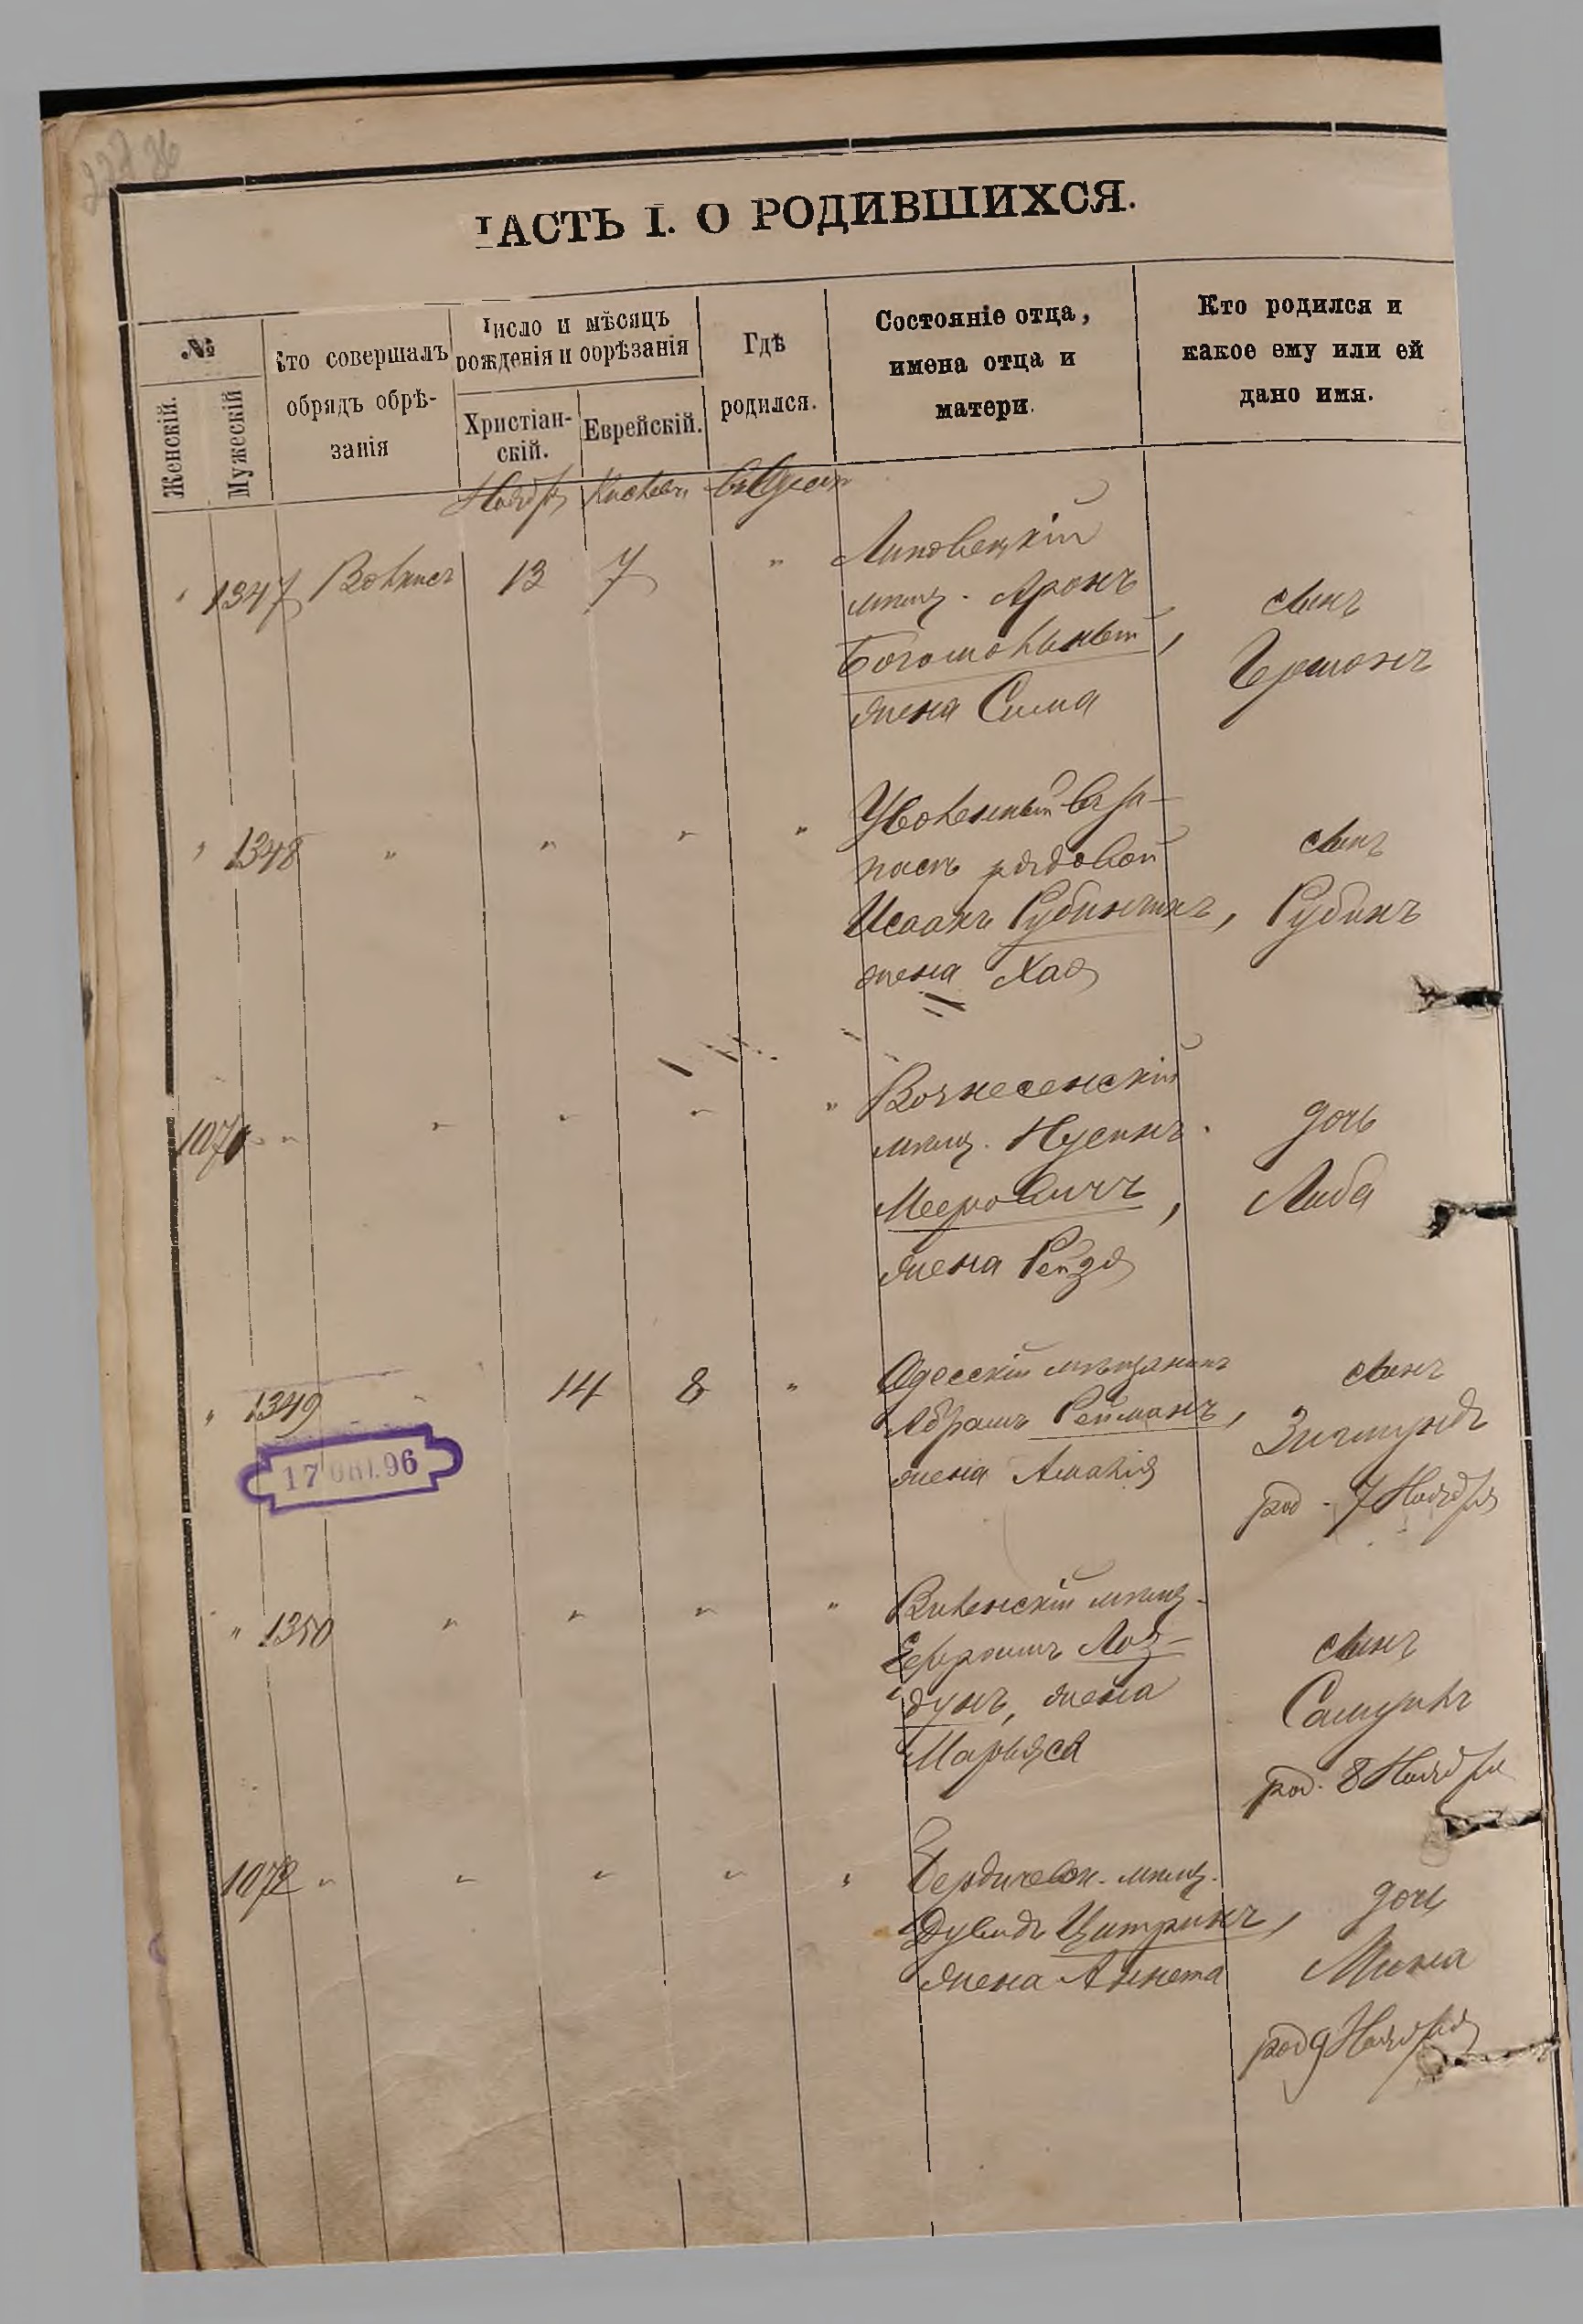 ЧАСТЬ I. О РОДИВШИХСЯ.
№
Женскій.
Мужескій
Кто совершалъ
обрядъ обрѣ-
занія
Число и мѣсяцъ
рожденія и обрѣзанія
Христіан-
скій.
Еврейскій.
Гдѣ
родился.
Состояніе отца,
имена отца и
матери.
Кто родился и
какое ему или ей
дано имя.
Ноября Кислевъ въ Одессѣ
" 1347 13 7 "
Липовецкій
мѣщ. Аронъ
Богомольный,
жена Сима
сынъ
Гершонъ
" 1348 " " " "
Уволенный въ за-
пасъ рядовой
Исаакъ Рубинчикъ,
жена Хая
сынъ
Рубинъ
1071 " " " " "
Вознесенскій
мѣщ. Нусинъ
Мееровичъ,
жена Рейзя
дочь
Либа
" 1349 " 14 8 "
Одесскій мѣщанинъ
Абрамъ Рейманъ,
жена Амалія
сынъ
Зигмундъ
род. 7 Ноября
17 96
" 1350 " " " "
Виленскій мѣщ.
Ефроимъ Лоз-
дунъ, жена
Марьяся
сынъ
Самуилъ
род. 8 Ноября
1072 " " " " "
Бердичевск. мѣщ.
Дувидъ Цитринъ,
жена Аннета
дочь
Мина
род 9 Ноября